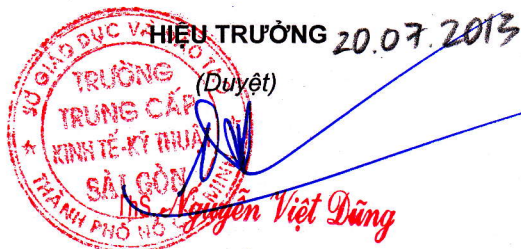 HIỆU TRƯỞNG 20.07.2013
(Duyệt)
SỞ GIÁO DỤC VÀ ĐÀO TẠO
TRƯỜNG
TRUNG CẤP
KINH TẾ-KỸ THUẬT
SÀI GÒN
THÀNH PHỐ HỒ CHÍ MINH
ThS. Nguyễn Việt Dũng